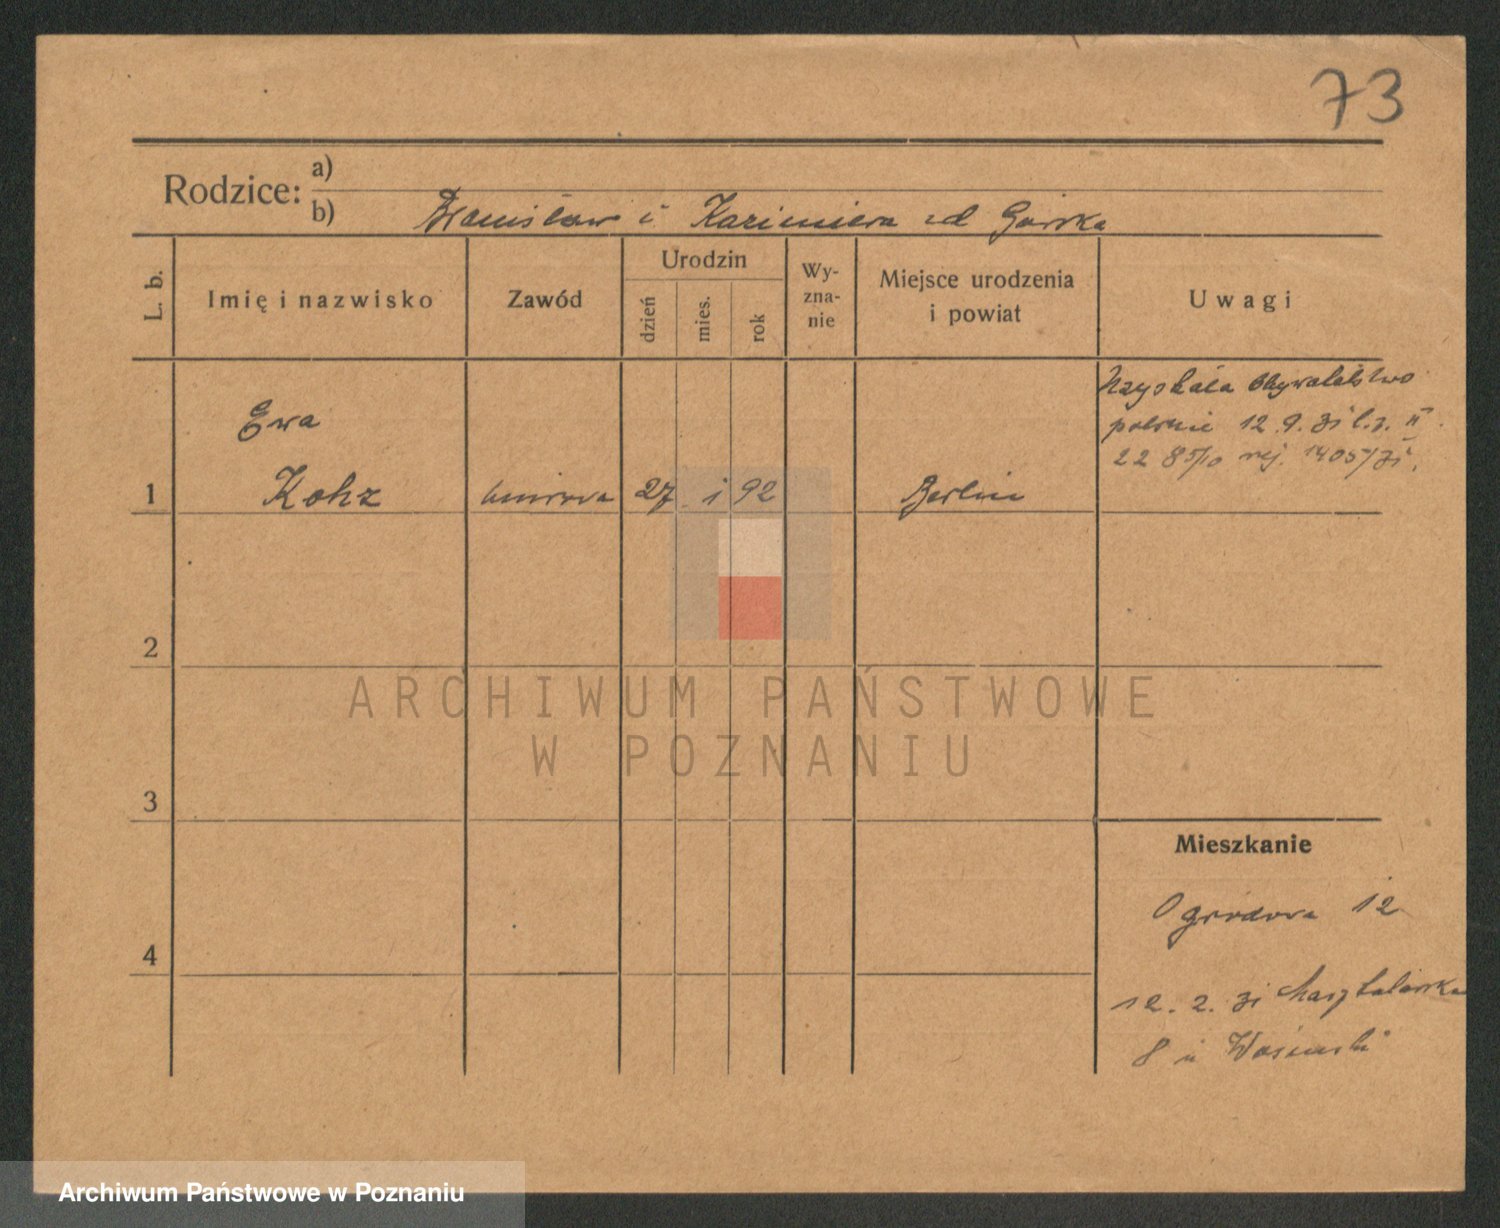 73
Rodzice: a)
b) Stanisław i Kazimiera zd Górska
L. b.
Imię i nazwisko
Zawód
Urodzin
dzień
mies.
rok
Wy-
zna-
nie
Miejsce urodzenia
i powiat
Uwagi
Uzyskała obywatelstwo
polskie 12.9.31 l.z. II
22 85/10 rej. 1405/31.
Ewa
1 Kohz 27 1 92 Berlin
2
ARCHIWUM PAŃSTWOWE
W POZNANIU
3
Mieszkanie
Ogrodowa 12
4
12. 2. 31 Masztalarska
8 u
Archiwum Państwowe w Poznaniu